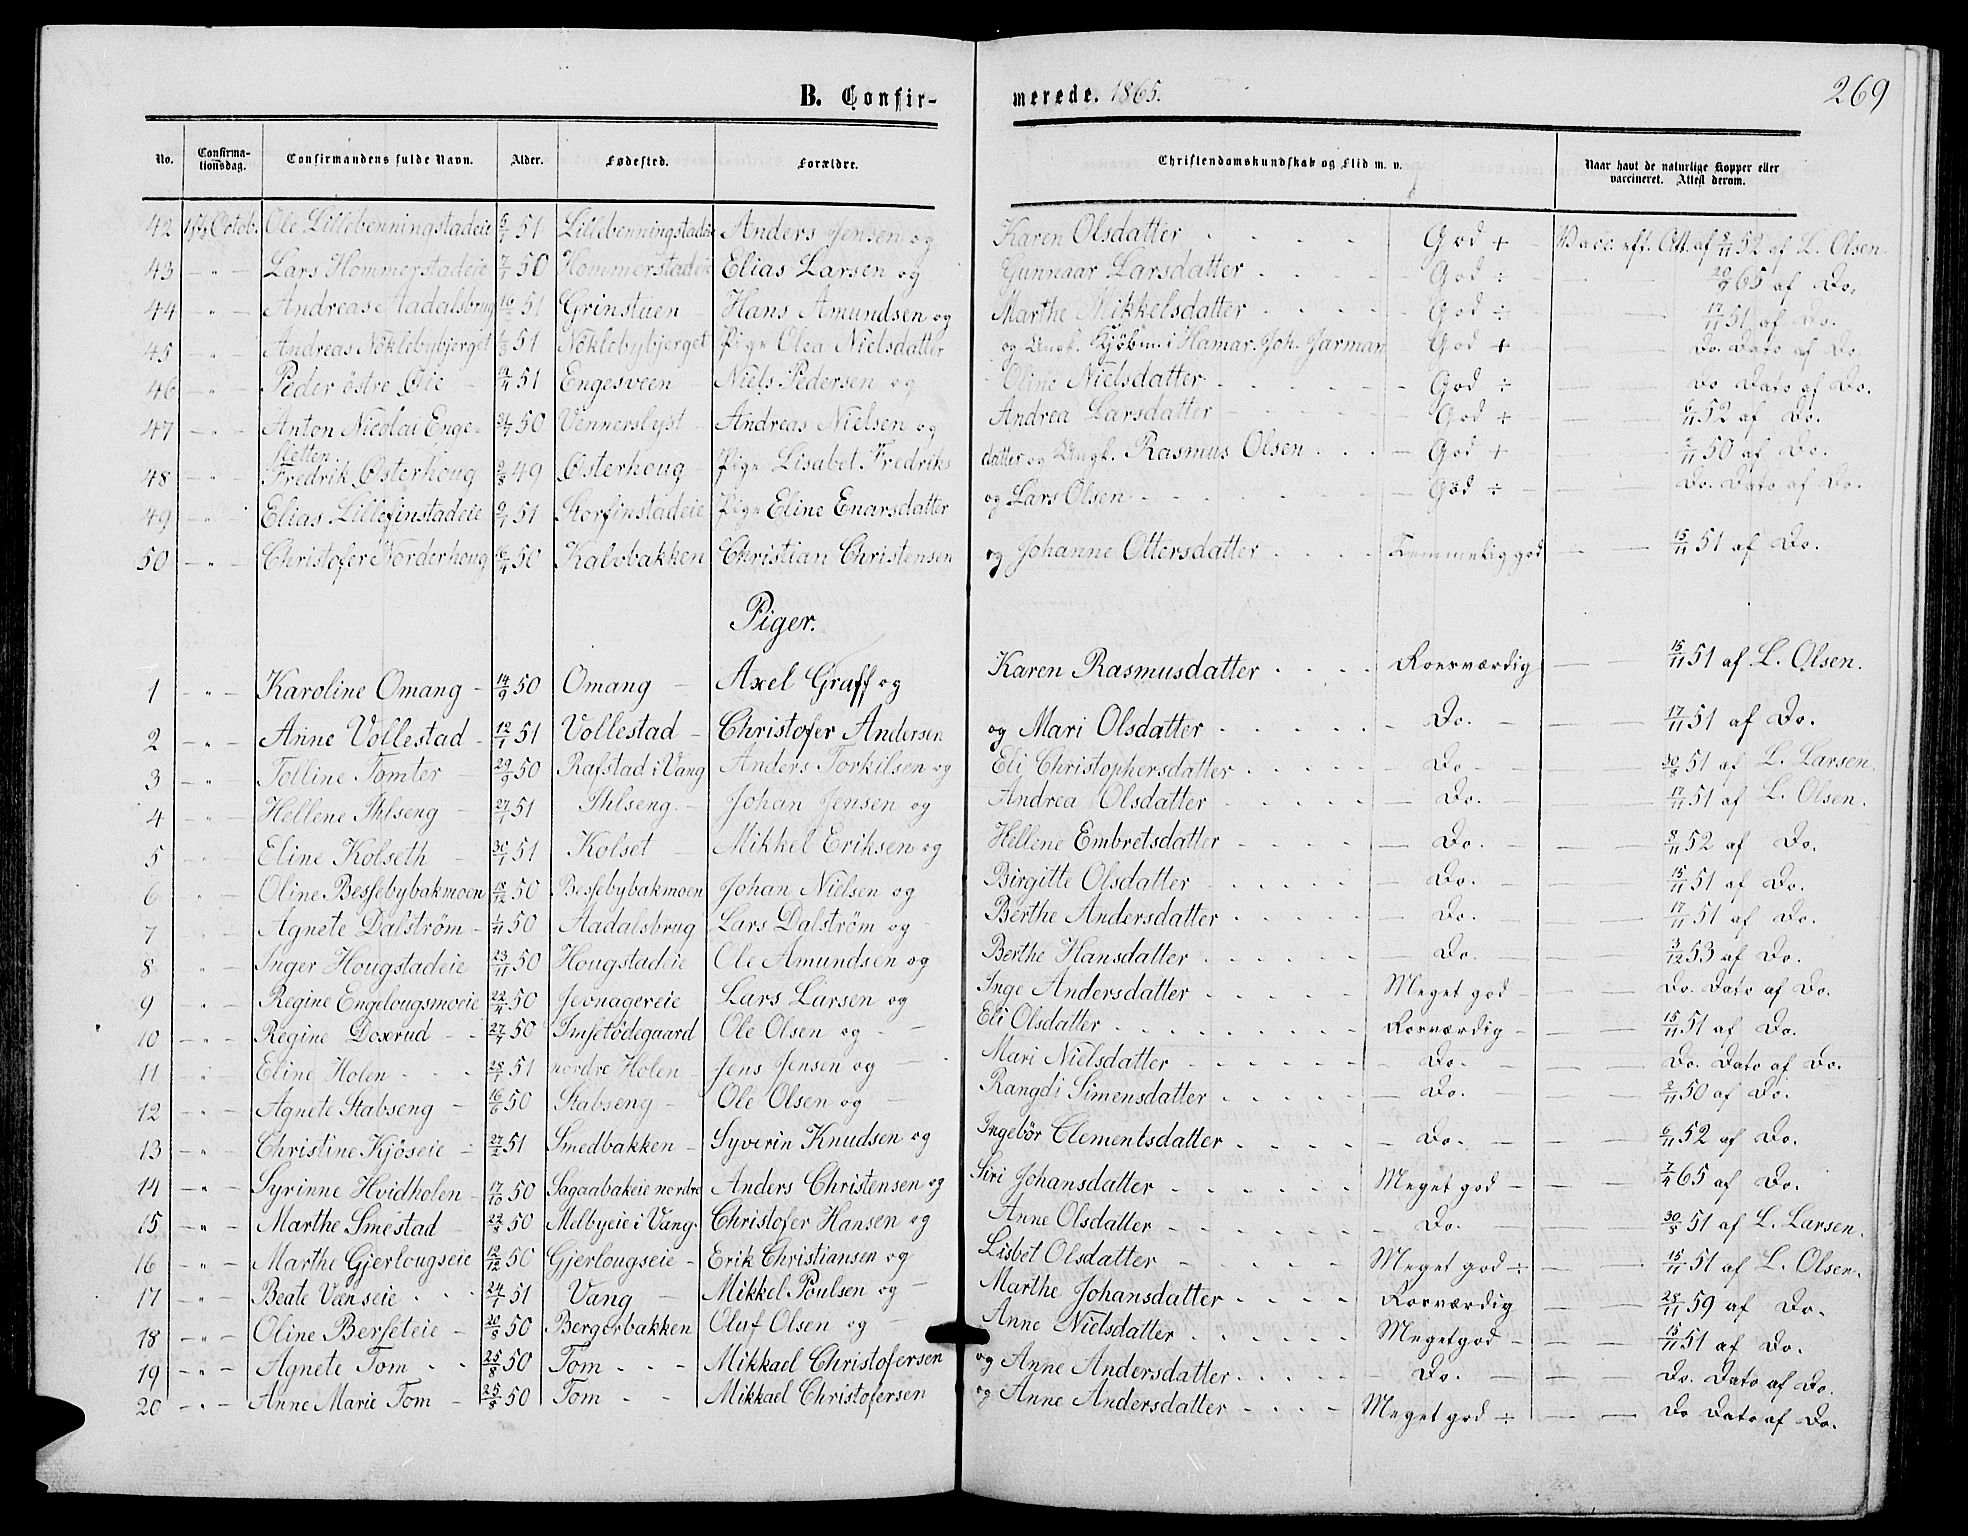 B. Confirmerede. 1865. 269
No. Confirmationsdag. Confirmandens fulde Navn. Alder. Fødested. Forældre. Christendomskundskab og Flid m. v. Naar havt de naturlige Kopper eller vaccineret. Attest derom.
42 1ste Octob. Ole Lillebenningstadeie 5/1 51 Lillebenningstadeie Anders Jensen og Karen Olsdatter God + Vacc. eft. Att. af 8/11 52 af L. Olsen
43 — " — Lars Hommerstadeie 7/7 50 Hommerstadeie Elias Larsen og Gunnaar Larsdatter God ÷ 20/9 65 af Do.
44 — " — Andreas Aadalsbrug 16/2 51 Grinstuen Hans Amundsen og Marthe Mikkelsdatter God ÷ 17/11 51 af Do.
45 — " — Andreas Nöklebybjerget 51 Nöklebybjerget Pige Olea Nielsdatter og Ungk. Kjöbm. i Hamar. Joh. Jarman God + Do. Dato af Do
46 — " — Peder östre Öie 14/4 51 Engesveen Niels Pedersen og Oline Nielsdatter God ÷ Do Dato af Do.
47 — " — Anton Nicolai Engesletten 31/7 50 Vennerslyst Andreas Nielsen og Andrea Larsdatter God + 6/11 52 af Do.
48 — " — Fredrik Østerhoug 2/8 49 Østerhoug Pige Lisabet Fredriksdatter og Ungk. Rasmus Olsen God + 2/11 50 af Do.
49 — " — Elias Lillefinstadeie 51 Storfinstadeie Pige Eline Enarsdatter og Lars Olsen God ÷ Do. Dato af Do.
50 — " — Christofer Norderhoug 50 Kalsbakken Christian Christensen og Johanne Ottersdatter Temmelig god 15/11 51 af Do.
Piger.
1 — " — Karoline Omang 14/9 50 Omang Axel Graff og Karen Rasmusdatter Roesværdig 15/11 51 af L. Olsen.
2 — " — Anne Vollestad 12/1 51 Vollestad Christofer Andersen og Mari Olsdatter Do. 17/11 51 af Do.
3 — " — Tolline Tomter 29/9 50 Rafstad i Vang Anders Torkilsen og Eli Christophersdatter Do 30/8 51 af L. Larsen.
4 — " — Hellene Ihlseng 27/1 51 Ihlseng Johan Jensen og Andrea Olsdatter Do. 17/11 51 af L. Olsen.
5 " Eline Kolseth 30/1 51 Kolset Mikkel Eriksen og Hellene Embretsdatter Do. 8/11 52 af Do.
6 " — Oline Bessebybakmoen 18/12 50 Bessebybakmoen Johan Nielsen og Birgitte Olsdatter Do. 15/11 51 af Do.
7 " — Agnete Dalström 1/11 50 Aadalsbrug Lars Dalström og Berthe Andersdatter Do. 17/11 51 af Do.
8 " — Inger Hougstadeie 23/11 50 Hougstadeie Ole Amundsen og Berthe Hansdatter Do. 3/12 53 af Do.
9 " — Regine Engelougsmoeie 22/4 50 Jevnagereie Lars Larsen og Inge Andersdatter Meget god Do. Dato af Do.
10 — " — Regine Doxrud 27/7 50 Imsetödegaard Ole Olsen og Eli Olsdatter Rosværdig 15/11 51 af Do.
11 " Eline Holen 28/1 51 nordre Holen Jens Jensen og Mari Nielsdatter Do. Do. Dato af Do.
12 — " — Agnete Stabseng 16/6 50 Stabseng Ole Olsen og Rangdi Simensdatter Do. 2/11 50 af Do.
13 — " — Christine Kjöseie 27/2 51 Smedbakken Syverin Knudsen og Ingebör Clementsdatter Do. 6/11 52 af Do.
14 — " — Syrinne Hvidholen 17/10 50 Sagaabakeie nordre Anders Christensen og Siri Johansdatter Meget god 7/4 65 af Do.
15 — " — Marthe Smestad 50 Melbyeie i Vang Christofer Hansen og Anne Olsdatter Do. 30/8 51 af L. Larsen.
16 — " — Marthe Gjerlougseie 12/12 50 Gjerlougseie Erik Christiansen og Lisbet Olsdatter Meget god ÷ 15/11 51 af L. Olsen.
17 — " — Beate Vænseie 24/1 51 Vang Mikkel Poulsen og Marthe Johansdatter Rosværdig 28/11 59 af Do.
18 — " — Oline Berseteie 20/8 50 Bergerbakken Oluf Olsen og Anne Nielsdatter Meget god 15/11 51 af Do.
19 — " — Agnete Tom 25/8 50 Tom Mikkael Christofersen og Anne Andersdatter Do. Do. Dato af Do.
20 — " — Anne Marie Tom 25/8 50 Tom Mikkael Christofersen og Anne Andersdatter Meget god ÷ Do Dato af Do.